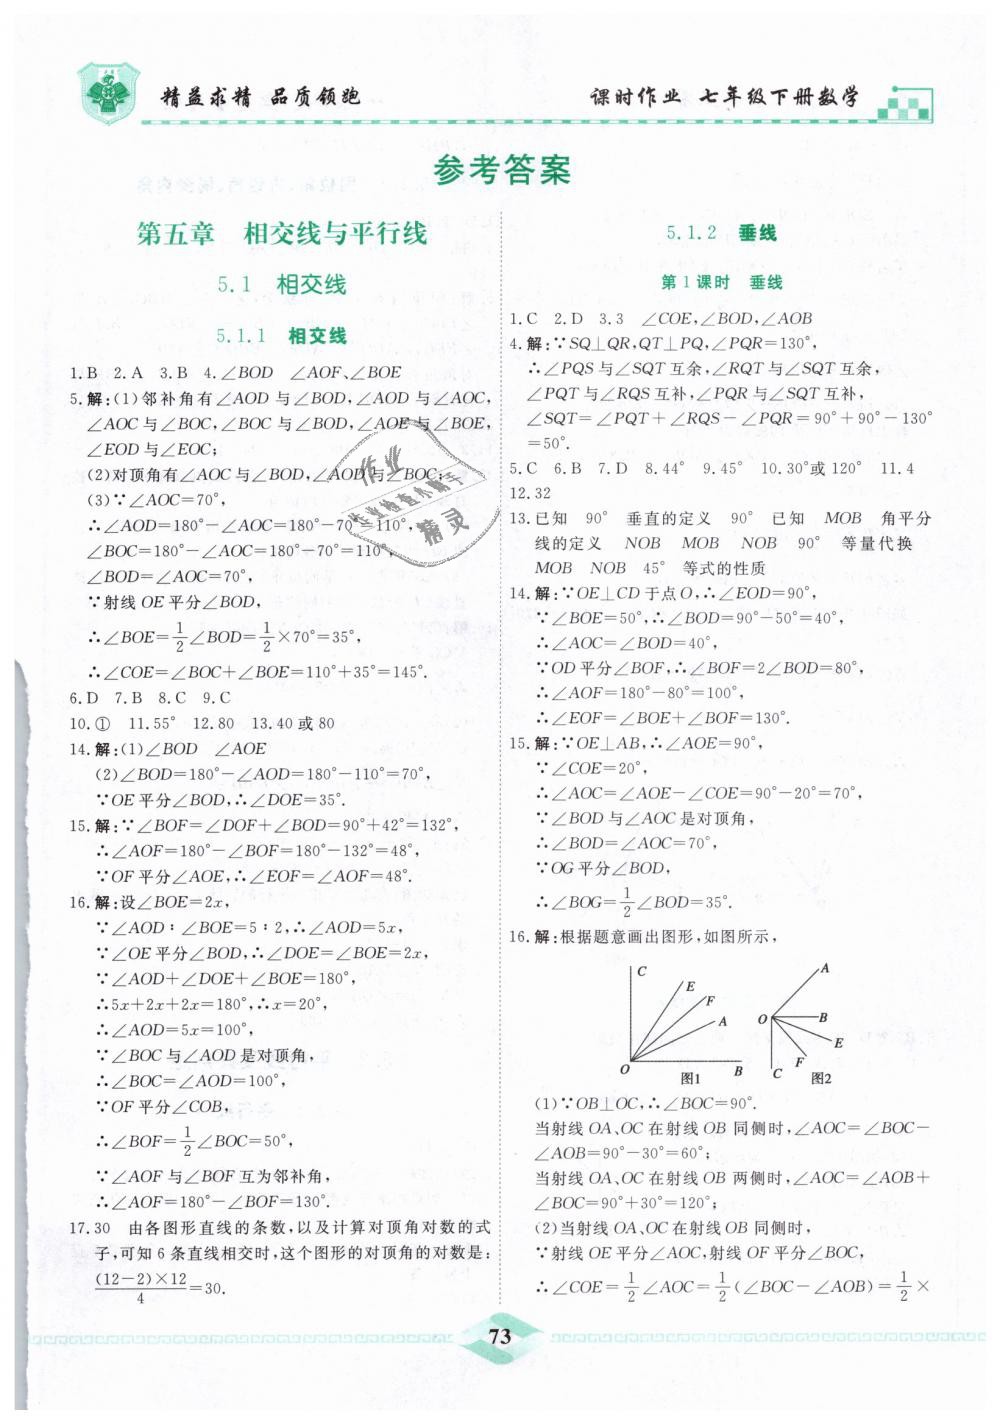 精益求精 品质领跑
课时作业 七年级下册数学
参考答案
第五章 相交线与平行线
5.1 相交线
5.1.1 相交线
1.B 2.A 3.B 4.∠BOD ∠AOF、∠BOE
5.解:(1)邻补角有∠AOD与∠BOD,∠AOD与∠AOC,
∠AOC与∠BOC,∠BOC与∠BOD,∠AOE与∠BOE,
∠EOD与∠EOC;
(2)对顶角有∠AOC与∠BOD,∠AOD与∠BOC;
(3)∵∠AOC=70°,
∴∠AOD=180°-∠AOC=180°-70°=110°,
∠BOC=180°-∠AOC=180°-70°=110°,
∠BOD=∠AOC=70°,
∵射线OE平分∠BOD,
∴∠BOE=1/2∠BOD=1/2×70°=35°,
∴∠COE=∠BOC+∠BOE=110°+35°=145°.
6.D 7.B 8.C 9.C
10.① 11.55° 12.80 13.40或80
14.解:(1)∠BOD ∠AOE
(2)∠BOD=180°-∠AOD=180°-110°=70°,
∵OE平分∠BOD,∴∠DOE=35°.
15.解:∵∠BOF=∠DOF+∠BOD=90°+42°=132°,
∴∠AOF=180°-∠BOF=180°-132°=48°,
∵OF平分∠AOE,∴∠EOF=∠AOF=48°.
16.解:设∠BOE=2x,
∵∠AOD:∠BOE=5:2,∴∠AOD=5x,
∵∠OE平分∠BOD,∴∠DOE=∠BOE=2x,
∵∠AOD+∠DOE+∠BOE=180°,
∴5x+2x+2x=180°,∴x=20°,
∴∠AOD=5x=100°,
∵∠BOC与∠AOD是对顶角,
∴∠BOC=∠AOD=100°,
∵OF平分∠COB,
∴∠BOF=1/2∠BOC=50°,
∵∠AOF与∠BOF互为邻补角,
∴∠AOF=180°-∠BOF=130°.
17.30 由各图形直线的条数,以及计算对顶角对数的式
子,可知6条直线相交时,这个图形的对顶角的对数是:
(12-2)×12/4=30.
5.1.2 垂线
第1课时 垂线
1.C 2.D 3.3 ∠COE,∠BOD,∠AOB
4.解:∵SQ⊥QR,QT⊥PQ,∠PQR=130°,
∴∠PQS与∠SQT互余,∠RQT与∠SQT互余,
∠PQT与∠RQS互补,∠PQR与∠SQT互补,
∠SQT=∠PQT+∠RQS-∠PQR=90°+90°-130°
=50°.
5.C 6.B 7.D 8.44° 9.45° 10.30°或120° 11.4
12.32
13.已知 90° 垂直的定义 90° 已知 MOB 角平分
线的定义 NOB MOB NOB 90° 等量代换
MOB NOB 45° 等式的性质
14.解:∵OE⊥CD于点O,∴∠EOD=90°,
∵∠BOE=50°,∴∠BOD=90°-50°=40°,
∴∠AOC=∠BOD=40°,
∵OD平分∠BOF,∴∠BOF=2∠BOD=80°,
∴∠AOF=180°-80°=100°,
∴∠EOF=∠BOE+∠BOF=130°.
15.解:∵OE⊥AB,∴∠AOE=90°,
∵∠COE=20°,
∴∠AOC=∠AOE-∠COE=90°-20°=70°,
∵∠BOD与∠AOC是对顶角,
∴∠BOD=∠AOC=70°,
∵OG平分∠BOD,
∴∠BOG=1/2∠BOD=35°.
16.解:根据题意画出图形,如图所示,
C E F A O B 图1
A O B E F C 图2
(1)∵OB⊥OC,∴∠BOC=90°.
当射线OA、OC在射线OB同侧时,∠AOC=∠BOC-
∠AOB=90°-30°=60°;
当射线OA、OC在射线OB两侧时,∠AOC=∠AOB+
∠BOC=90°+30°=120°;
(2)当射线OA、OC在射线OB同侧时,
∵射线OE平分∠AOC,射线OF平分∠BOC,
∴∠COE=1/2∠AOC=1/2(∠BOC-∠AOB)=1/2×
73
作业
作业检查小助手
精灵